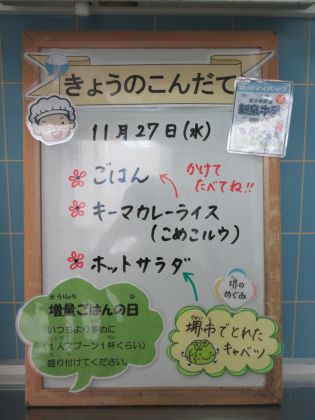 きょうのこんだて
11月27日(水)
ごはん
かけて
たべてね!!
キーマカレーライス
(こめこルウ)
ホットサラダ
堺の
めぐみ
ぞうりょう ひ
増量ごはんの日
いつもより多めに
(1人スプーン1杯くらい)
盛り付けてください。
堺市でとれた
キャベツ